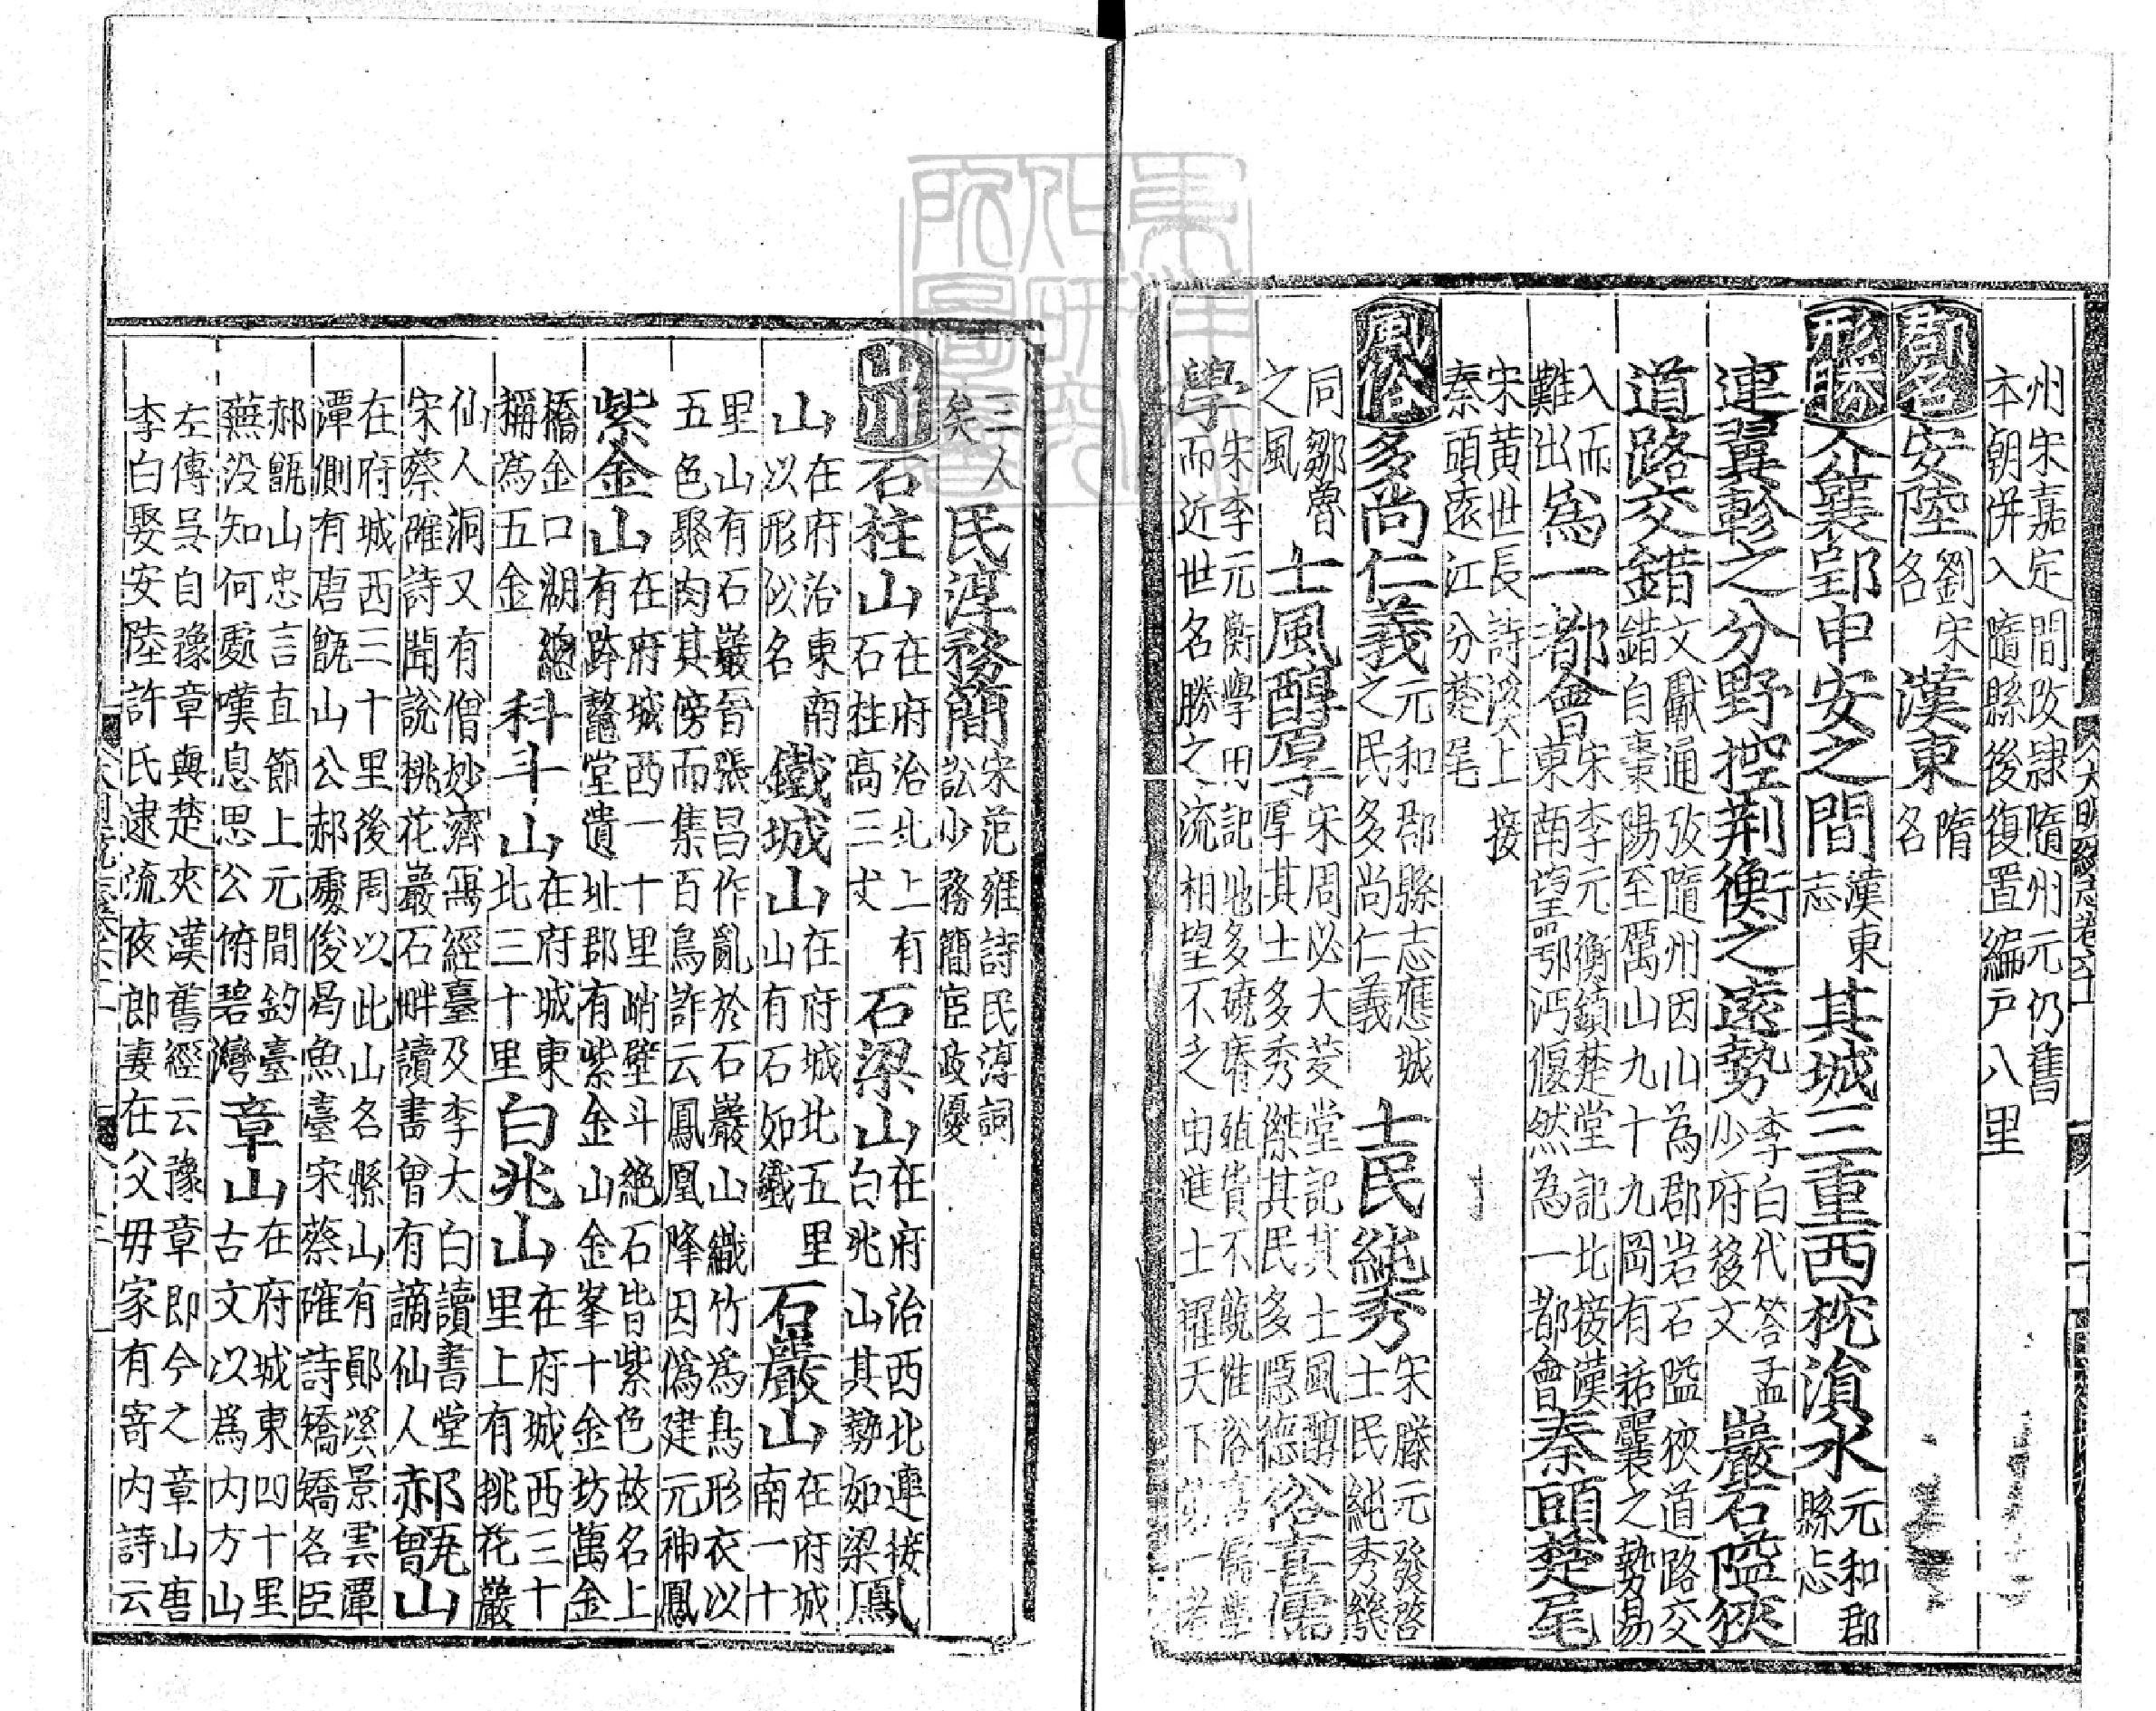 州宋嘉定間改隷隨州元仍舊
本朝併入隨縣後復置編戸八里
郡名 安陸 劉宋名 漢東 隋名
形勝 介襄郢申安之間 漢東志 其城三重西枕溳水 元和郡縣志
連翼軫之分野控荆衡之遠勢 李白代答孟少府移文 巖石隘狹
道路交錯 文獻通攷隨州因山為郡岩石隘狹道路交錯自棗陽至厲山九十九岡有括囊之勢易
入而難出 為一都會 宋李元衡鎮楚堂記北接漢東南望鄂沔偃然為一都會 秦頭楚尾
宋黄世長詩溪上接秦頭遠江分楚尾
風俗 多尚仁義 元和郡縣志應城之民多尚仁義 士民純秀 宋滕元發啓士民純秀幾
同鄒魯之風 士風醇厚 宋周必大茭堂記其士風醇厚其士多秀傑其民多隱德 俗喜儒
學 宋李元衡學田記地多磽瘠殖貨不能惟俗喜儒學而近世名勝之流相望不乏由進士擢天下第一者
三人矣 民淳務簡 宋范雍詩民淳詞訟少務簡宦政優
山川 石柱山 在府治北上有石柱高三丈 石梁山 在府治西北連接白兆山其勢如梁 鳳
山 在府治東南以形似名 鐵城山 在府城北五里山有石如鐵 石巖山 在府城南一十
里山有石巖晉張昌作亂於石巖山織竹為鳥形衣以五色聚肉其傍而集百鳥詐云鳳凰降因偽建元神鳳
紫金山 在府城西一十里峭壁斗絶石皆紫色故名上有跨鼇堂遺址郡有紫金山金峯十金坊萬金
橋金口湖總稱為五金 科斗山 在府城東北三十里 白兆山 在府城西三十里上有桃花巖
仙人洞又有僧妙濟寫經臺及李太白讀書堂宋蔡確詩聞說桃花巖石畔讀書曾有謫仙人 郝甑山
在府城西三十里後周以此山名縣山有鄖溪景雲潭潭側有唐甑山公郝處俊舄魚臺宋蔡確詩矯矯名臣
郝甑山忠言直節上元間釣臺蕪没知何處嘆息思公俯碧灣 章山 在府城東四十里古文以為内方山
左傳吳自豫章與楚夾漢舊經云豫章即今之章山唐李白娶安陸許氏逮流夜郎妻在父毋家有寄内詩云